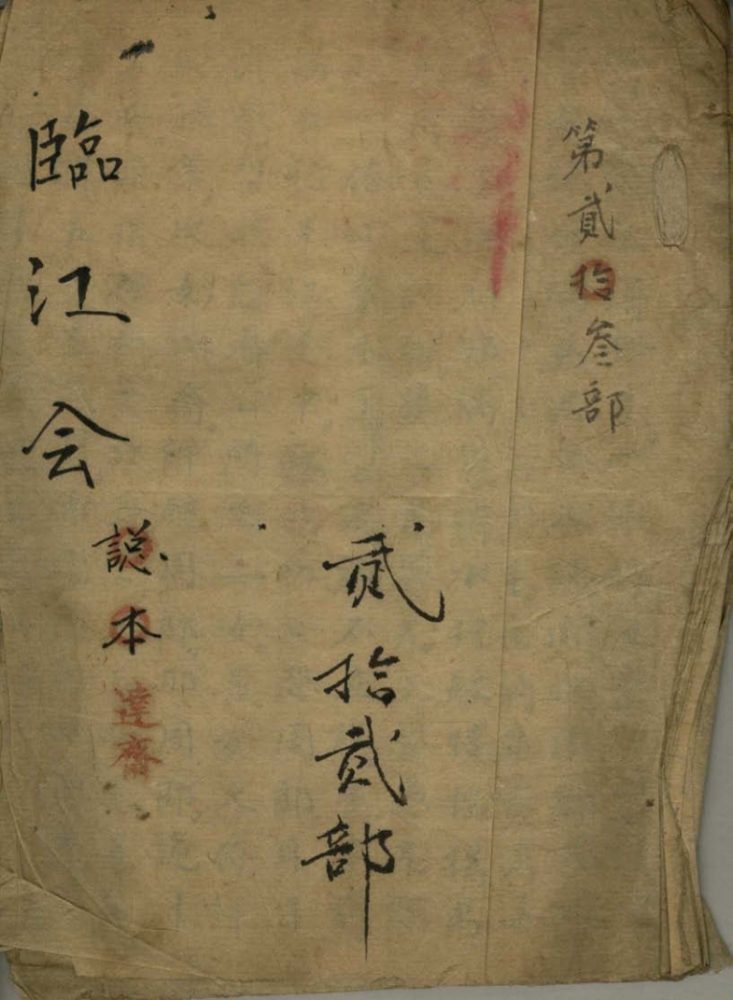 第貳拾叁部
貳拾貳部
臨江会
說本 達齋